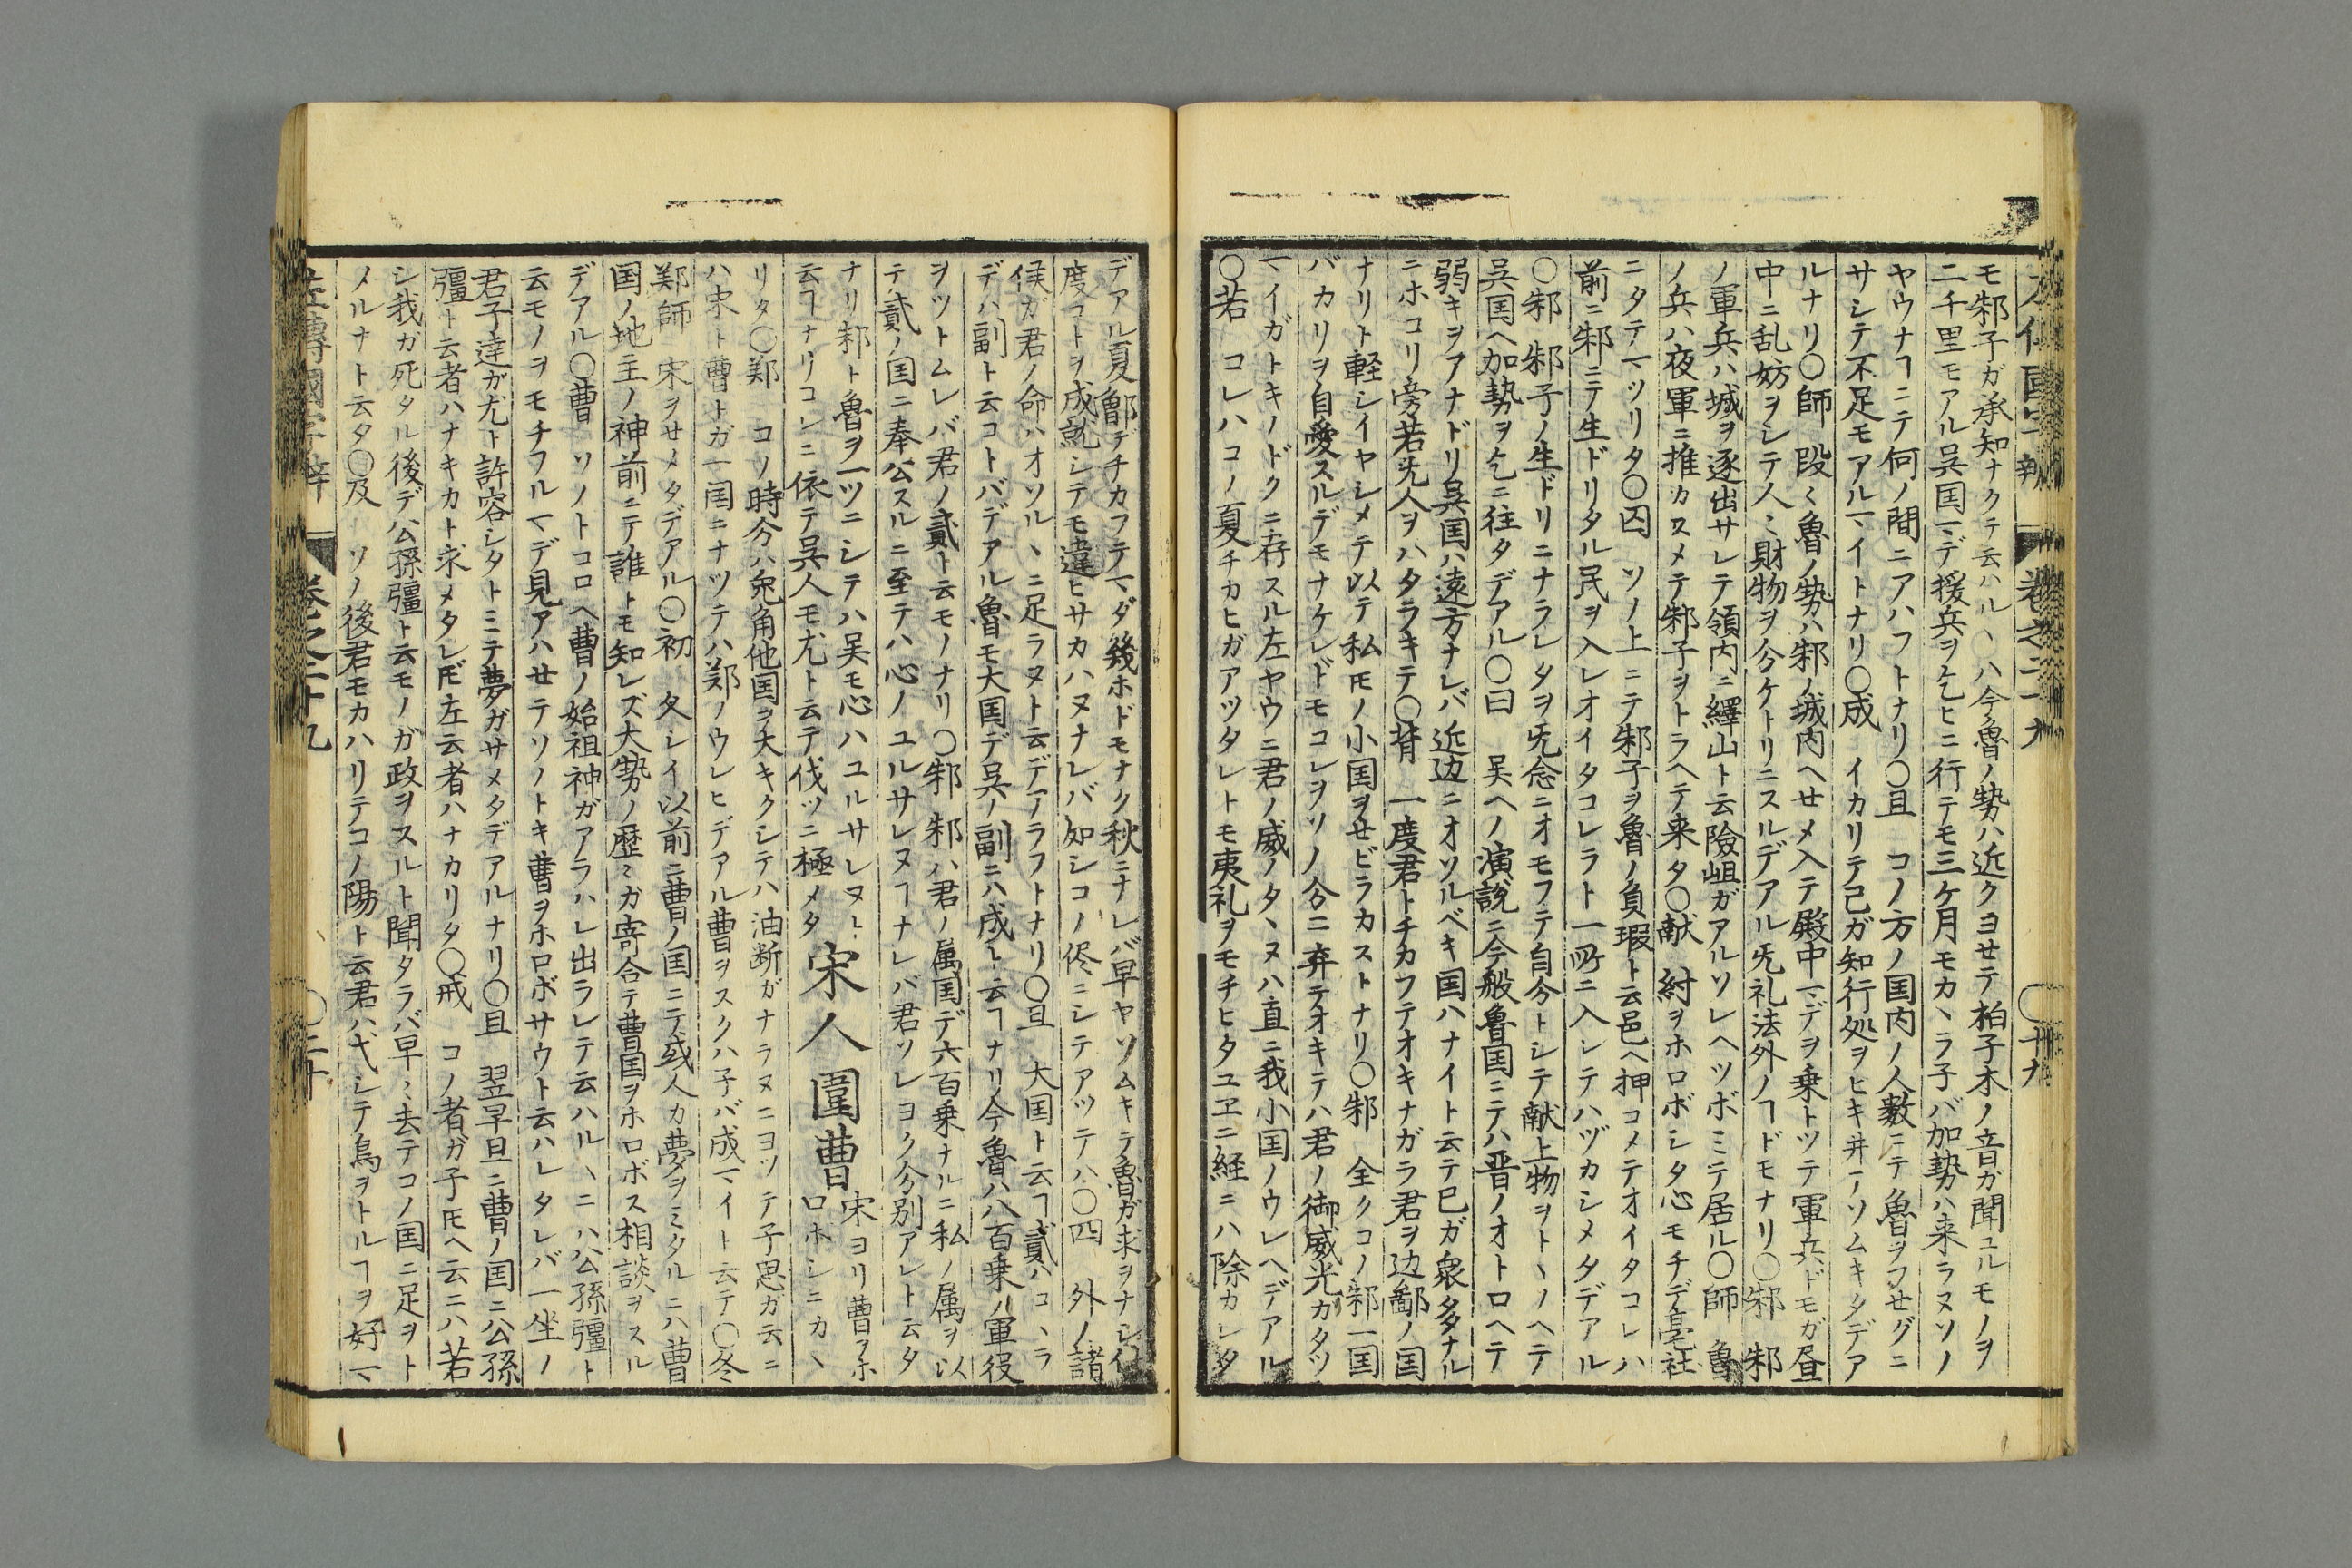 モ邾子ガ承知ナクテ云ハル丶〇ハ今魯ノ勢ハ近クヨせテ柏子木ノ音ガ聞ユルモノヲ
二千里モアル呉国マデ援兵ヲ乞ヒニ行テモ三ケ月モカヽラ子バ加勢ハ来ラヌソノ
ヤウナヿニテ何ノ間ニアハフトナリ〇且　コノ方ノ国内ノ人数ニテ魯ヲフせグニ
サシテ不足モアルマイトナリ〇成　イカリテ己ガ知行処ヲヒキ井テソムキタデア
ルナリ〇師　段〻魯ノ勢ハ邾ノ城内ヘせメ入テ殿中マデヲ乗トツテ軍兵ドモガ昼
中ニ乱妨ヲシテ人〻財物ヲ分ケトリニスルデアル旡礼法外ノヿドモナリ〇邾　邾
ノ軍兵ハ城ヲ逐出サレテ領内ニ繹山ト云險岨ガアルソレヘツボミテ居ル〇師　魯
ノ兵ハ夜軍ニ推カスメテ邾子ヲトラヘテ来タ〇献　紂ヲホロボシタ心モチデ亳社
ニタテマツリタ〇囚　ソノ上ニテ邾子ヲ魯ノ負瑕ト云邑ヘ押コメテオイタコレハ
前ニ邾ニテ生ドリタル民ヲ入レオイタコレラト一所ニ入レテハヅカシメタデアル
〇邾　邾子ノ生ドリニナラレタヲ旡念ニオモフテ自分トシテ献上物ヲトヽノヘテ
呉国ヘ加勢ヲ乞ニ往タデアル〇曰　呉ヘノ演説ニ今般魯国ニテハ晋ノオトロヘテ
弱キヲアナドリ呉国ハ遠方ナレバ近辺ニオソルベキ国ハナイト云テ己ガ衆多ナル
ニホコリ旁若旡人ヲハタラキテ〇背　一度君トチカフテオキナガラ君ヲ辺鄙ノ国
ナリト軽シイヤシメテ以テ私𪜈ノ小国ヲせビラカストナリ〇邾　全クコノ邾一国
バカリヲ自愛スルデモナケレドモコレヲソノ分ニ弃テオキテハ君ノ御威光カタツ
マイガトキノドクニ存スル左ヤウニ君ノ威ノタヽヌハ直ニ我小国ノウレヘデアル
〇若　コレハコノ夏チカヒガアツタレトモ夷礼ヲモチヒタユヱニ経ニハ除カレタ
デアル夏鄫デチカフテマダ幾ホドモナク秋ニナレバ早ヤソムキテ魯ガ求ヲナシ
度コトヲ成就シテモ違ヒサカハヌナレバ如シコノ侭ニシテアツテハ〇四　外ノ諸
侯ガ君ノ命ハオソルヽニ足ラヌト云デアラフトナリ〇且　大国ト云ヿ貳ハコヽラ
デハ副ト云コトバデアル魯モ大国デ呉ノ副ニハ成ト云ヿナリ今魯ハ八百乗ノ軍役
ヲツトムレバ君ノ貳ト云モノナリ〇邾　邾ハ君ノ属国デ六百乗ナルニ私ノ属ヲ以
テ貳ノ国ニ奉公スルニ至テハ心ノユルサレヌヿナレバ君ソレヨク分別アレト云タ
ナリ邾ト魯ヲ一ツニシテハ呉モ心ハユルサレヌト
云ヿナリコレニ依テ呉人モ尤ト云テ伐ツニ極メタ
宋人圍曹
宋ヨリ曹ヲホ
ロボシニカヽ
リタ〇鄭　コノ時分ハ兎角他国ヲ大キクシテハ油断ガナラヌニヨツテ子思ガ云ニ
ハ宋ト曹トガ一国ニナツテハ鄭ノウレヒデアル曹ヲスクハ子バ成マイト云テ〇冬
鄭師　宋ヲせメタデアル〇初　久シイ以前ニ曹ノ国ニテ或人カ夢ヲミタルニハ曹
国ノ地主ノ神前ニテ誰トモ知レズ大勢ノ歴〻ガ寄合テ曹国ヲホロボス相談ヲスル
デアル〇曹　ソノトコロヘ曹ノ始祖神ガアラハレ出ラレテ云ハルヽニハ公孫彊ト
云モノヲモチフルマデ見アハせテソノトキ曹ヲホロボサウト云ハレタレバ一坐ノ
君子達ガ尤ト許容シタトミテ夢ガサメタデアルナリ〇且　翌早旦ニ曹ノ国ニ公孫
彊ト云者ハナキカト求メタレ𪜈左云者ハナカリタ〇戒　コノ者ガ子𪜈ヘ云ニハ若
シ我ガ死タル後デ公孫彊ト云モノガ政ヲスルト聞タラバ早〻去テコノ国ニ足ヲト
メルナト云タ〇及　ソノ後君モカハリテコノ陽ト云君ハ弋シテ鳥ヲトルヿヲ好マ
左傳國字辯　巻之二十九　〇三十